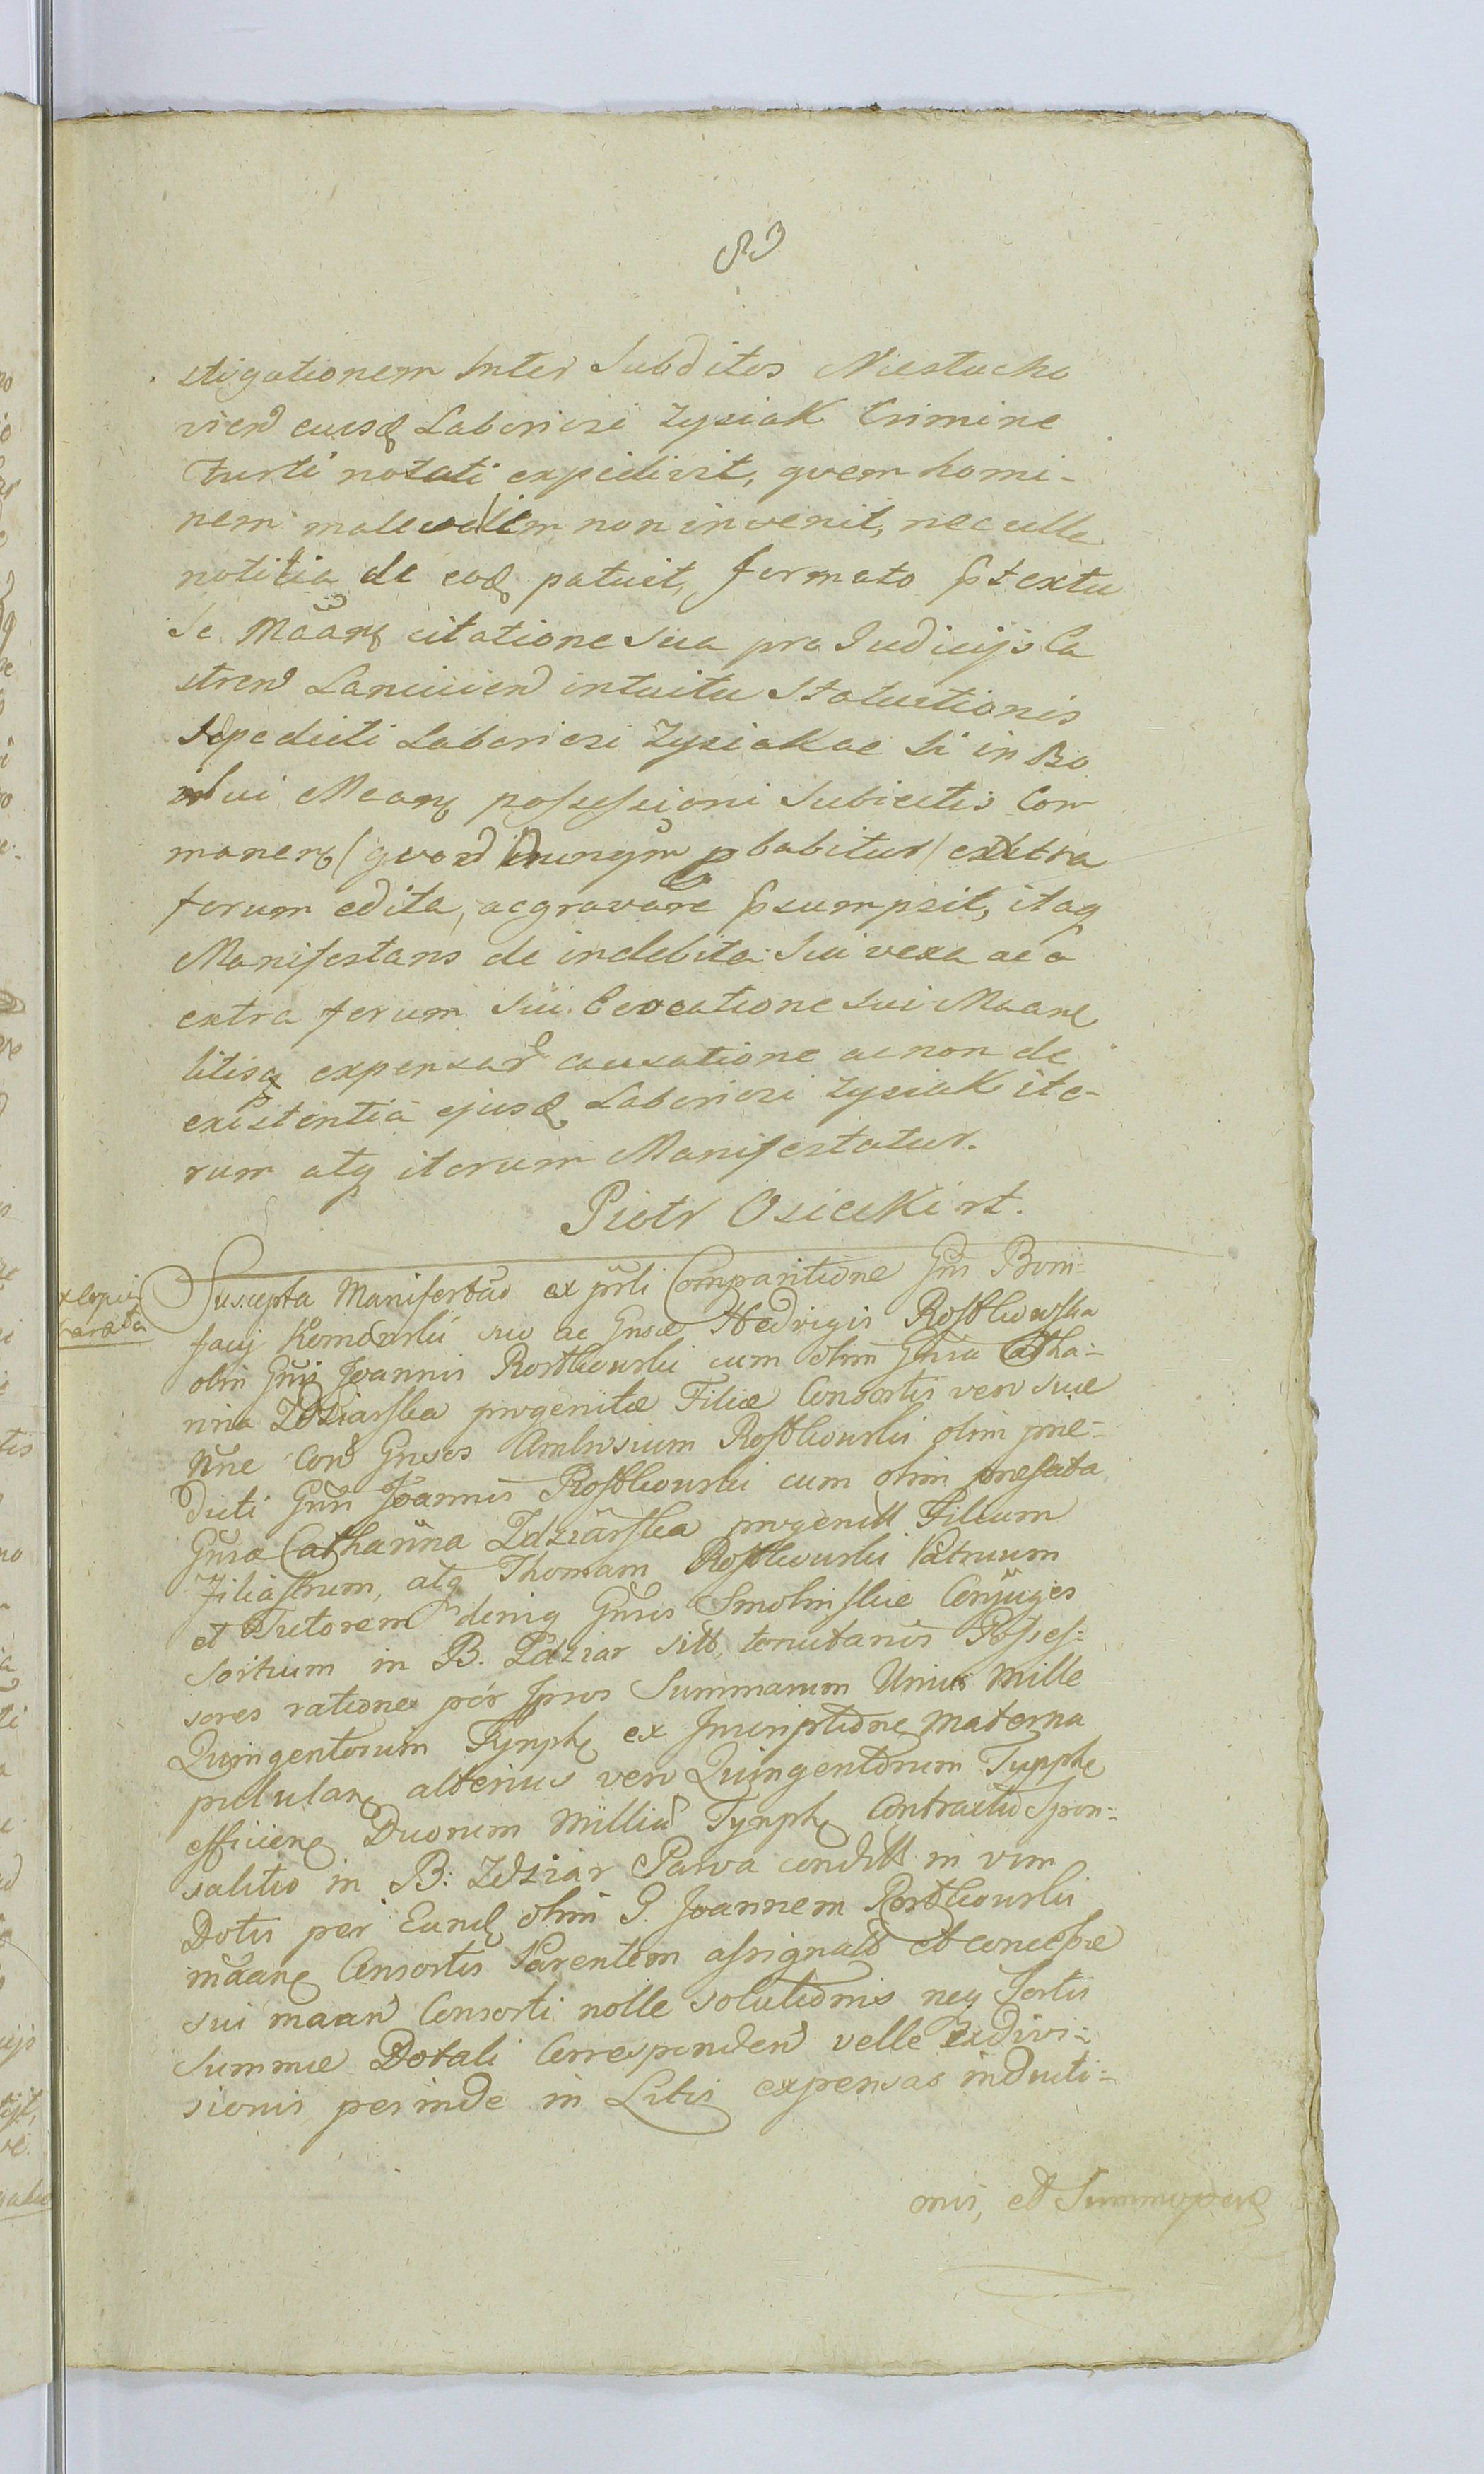 83
stigationem Inter Subditos Niestucho
vien eiusq Laboriosi Zysiak Crimine
Furti notati expedivit, quem homi-
nem non invenit, nec ulla
notitia de eod patuit, formato ptextu
Se Maanq citatione sua pro Judicijs Ca
stren Lancicien intuitu Statuitionis
Sepedicti Laboriosi Zysiak ac Si in Bo
sui Maanq possessioni Subiectis Com
manenq (quod nunqm pbabitur) extra
forum edita, aggravare psumpsit, itaq
Manifestans de indebita Sui vexa ac a
extra forum sui Evocatione sui Maanq
litisq expensar causatione ac non de
existentia ejusd Laboriosi Zysiak ite-
rum atq iterum Manifestatur.
Piotr Osiecki rt.
Suscepta Manifestao ex prli Comparitione Gnsi Boni-
facij Komorski suo ac Gnsae Hedvigis Rostkowska
olim Gnsi Joannis Rostkowski cum olim Gnsa Catha-
rina Zdziarska progenitae Filiae Consortis vero suae
nne Con Gnsos Ambrosium Rostkowski olim prae-
dicti Gnsi Joannis Rostkowski cum olim praefata
Gnsa Catharina Zdziarska progenitt Filium
Filiastrum, atq Thomam Rostkowski Patruum
et Tutorem deniq Gnsos Smolinskie Conjuges
Sortium in B. Zdziar sitt, tenutarios Posses-
sores ratione per Ipsos Summarum Unius Mille
Quingentorum Tynph ex Inscriptione Materna
pullulanq alterius vero Quingentorum Tynph
efficienq Duorum Millium Tynph Contractu Spon-
salitio in B: Zdziar Parva condtt in vim
Dotis per Eund olim G. Joannem Rostkowski
maanq Consortis Parentem assignatt et concessae
sui maan Consorti nolle solutionis neq Sortis
Summae Dotali Corresponden velle Exdivi-
sionis perinde in Litis expensas inducti-
onis, et Summopere